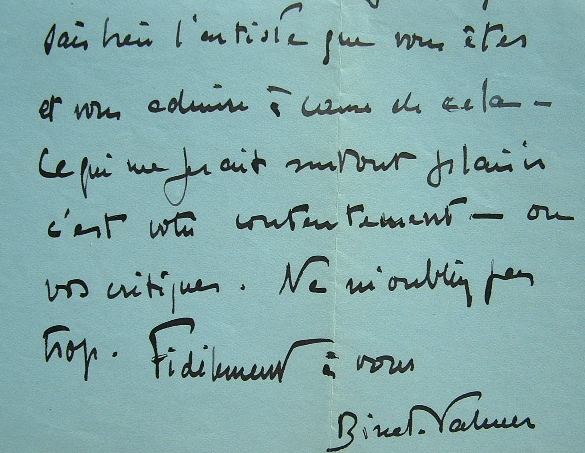 sais bien l'artiste que vous êtes
et vous admire à cause de cela —
Ce qui me ferait surtout plaisir
c'est votre contentement — ou
vos critiques. Ne m'oubliez pas
trop. Fidèlement à vous
Binet-Valmer